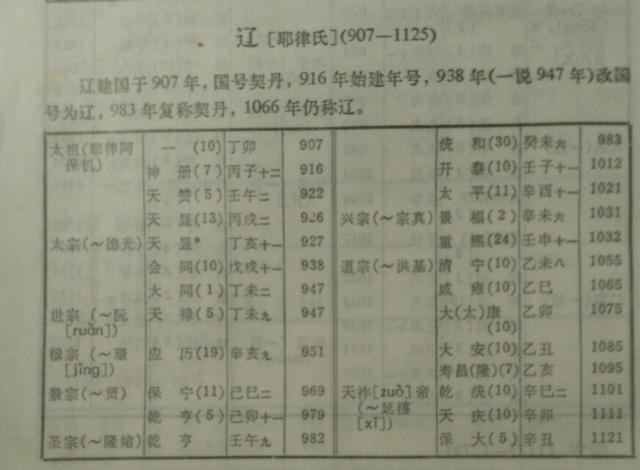 辽 [耶律氏](907—1125)
辽建国于907年，国号契丹，916年始建年号，938年(一说947年)改国
号为辽，983年复称契丹，1066年仍称辽。
太祖(耶律阿保机) 一(10) 丁卯 907
神册(7) 丙子十二 916
天赞(5) 壬午二 922
天显(13) 丙戌二 926
太宗(～德光) 天显* 丁亥十一 927
会同(10) 戊戌十一 938
大同(1) 丁未二 947
世宗(～阮[ruǎn]) 天禄(5) 丁未九 947
穆宗(～璟[jǐng]) 应历(19) 辛亥九 951
景宗(～贤) 保宁(11) 己巳二 969
乾亨(5) 己卯十一 979
圣宗(～隆绪) 乾亨 壬午九 982
统和(30) 癸未六 983
开泰(10) 壬子十一 1012
太平(11) 辛酉十一 1021
兴宗(～宗真) 景福(2) 辛未六 1031
重熙(24) 壬申十一 1032
道宗(～洪基) 清宁(10) 乙未八 1055
咸雍(10) 乙巳 1065
大(太)康(10) 乙卯 1075
大安(10) 乙丑 1085
寿昌(隆)(7) 乙亥 1095
天祚[zuò]帝(～延禧[xǐ]) 乾统(10) 辛巳二 1101
天庆(10) 辛卯 1111
保大(5) 辛丑 1121